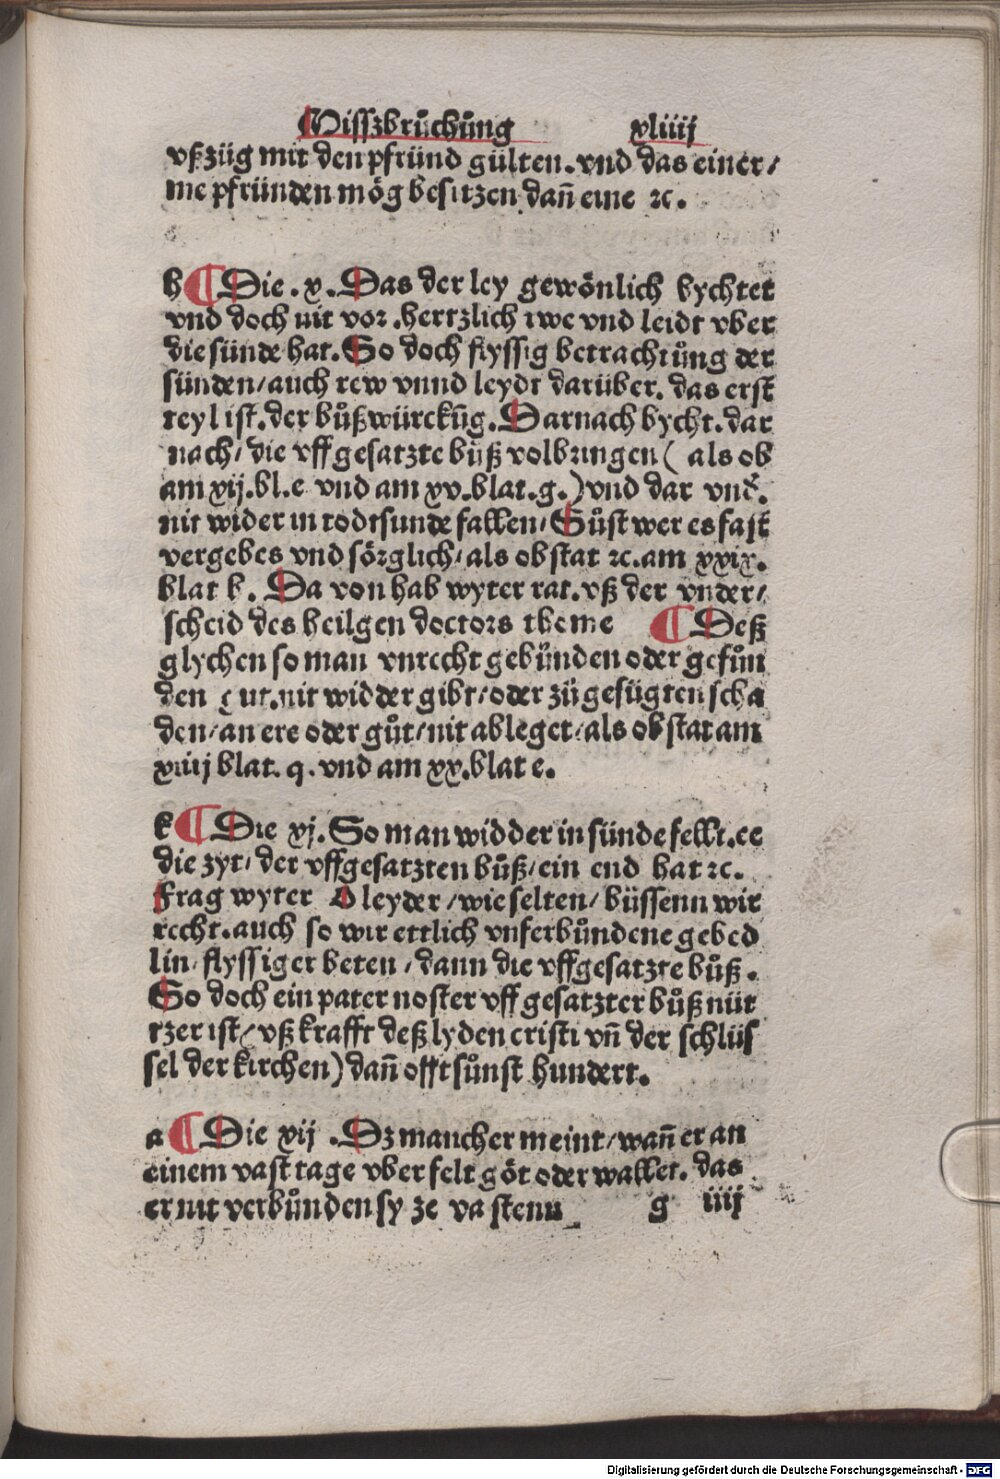 Misszbrůchůng xliiij
vßzüg mit den pfründ gülten. vnd das einer/
me pfründen mög besitzen dañ eine ꝛc.
h ¶ Die .x. Das der ley gewönlich bychtet
vnd doch nit vor .hertzlich rwe vnd leidt vber
die sünde hat. So doch flyssig betrachtůng der
sünden/ auch rew vnnd leydt darüber. das erst
teyl ist. der bůßwürckũg. Darnach bycht. dar
nach/ die vffgesatzte bůß volbringen ( als ob
am xij.bl.e vnd am xv.blat.g.) vnd dar vnd̃.
nit wider in todtsunde fallen/ Sůst wer es fast
vergebes vnd sörglich/ als obstat ꝛc. am xxix.
blat b. Da von hab wyter rat. vß der vnder/
scheid des heilgen doctors thome ¶ Deß
glychen so man vnrecht gebůnden oder gefům
den gut. nit widder gibt/ oder zů gefügten scha
den/ an ere oder gůt/ nit ableget/ als obstat am
xiiij blat. q. vnd am xx.blat e.
k ¶ Die xj. So man widder in sünde fellt. ee
die zyt/ der vffgesatzten bůß/ ein end hat ꝛc.
Frag wyter O leyder/ wie selten/ büssenn wir
recht. auch so wir ettlich vnferbůndene gebed
lin/ flyssiger beten/ dann die vffgesatzte bůß.
So doch ein pater noster vffgesatzter bůß nüt
tzer ist/ ( vß krafft deß lyden cristi vñ der schlüs
sel der kirchen) dañ offt sůnst hundert.
a ¶ Die xij . Dz mancher meint/ wañ er an
einem vast tage vber felt göt oder wallet. das
er nit verbůnden sy ze vastenn g iiij
Digitalisierung gefördert durch die Deutsche Forschungsgemeinschaft - DFG